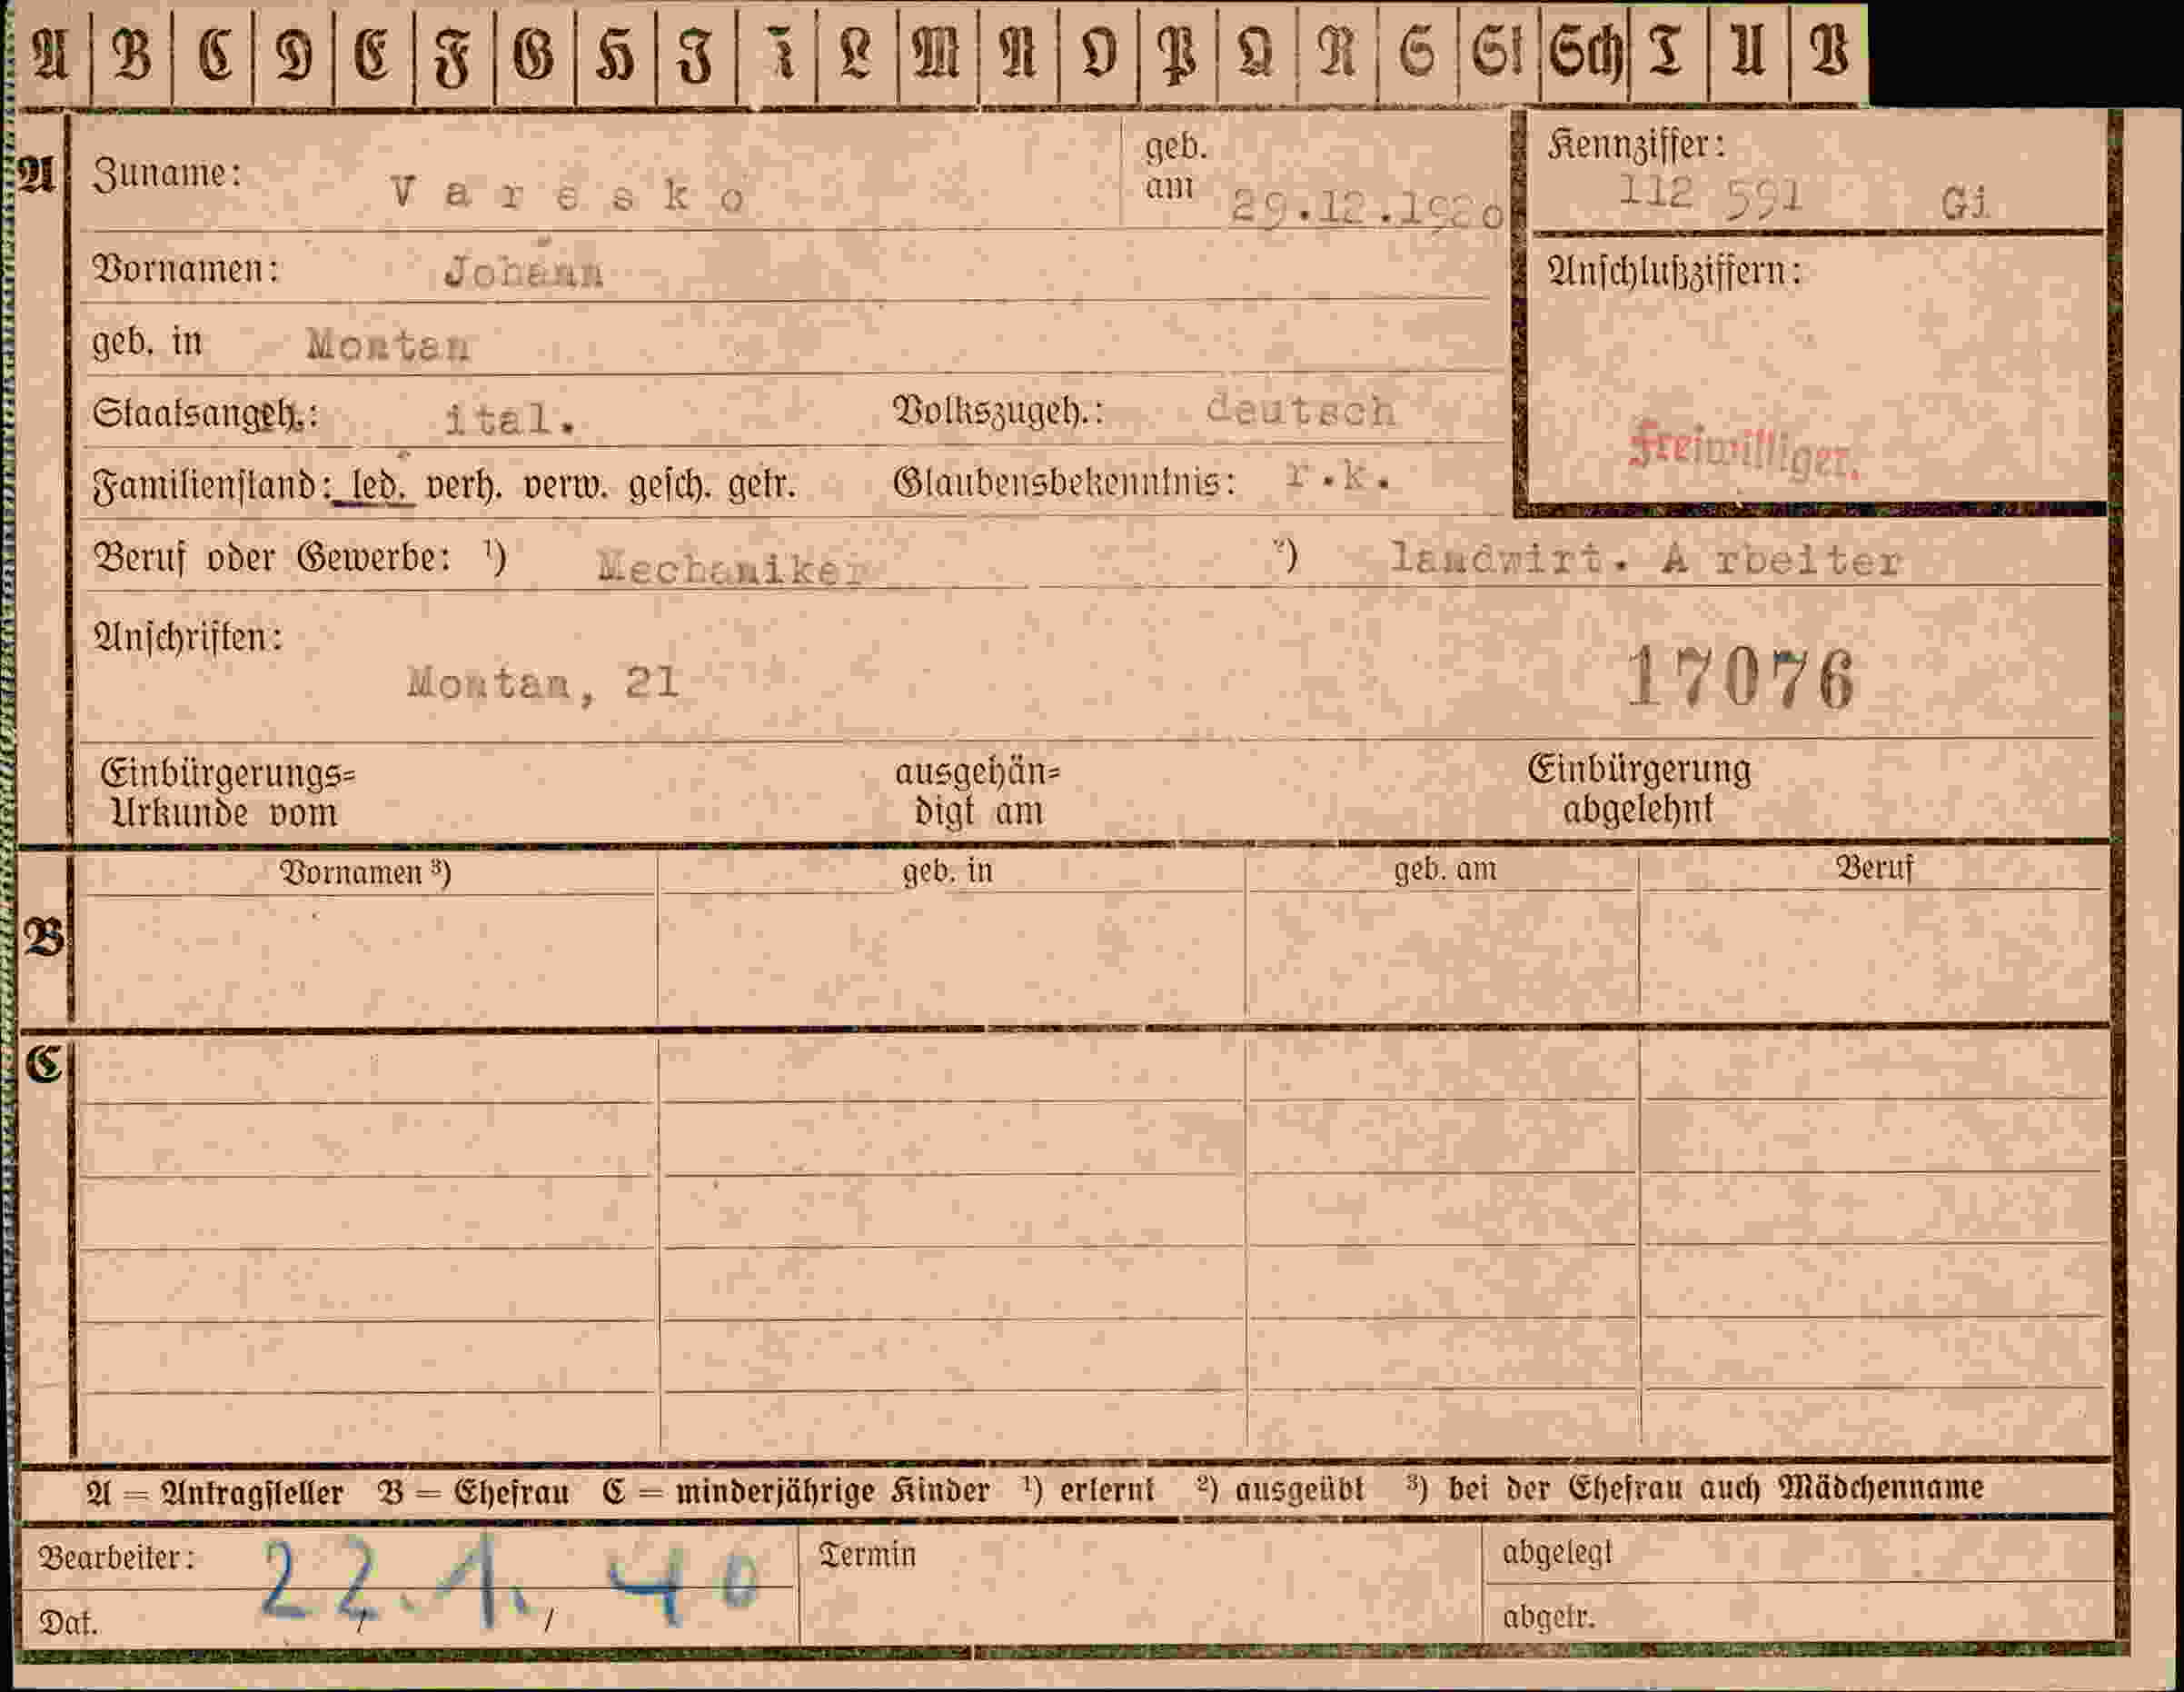 A B C D E F G H I L M N O P Q R S St Sch T U V
A Zuname: Varesko geb. am 29.12.1920 Kennziffer: 112 591 Gi
Vornamen: Johann Anschlußziffern:
geb. in Montan
Staatsangeh.: ital. Volkszugeh.: deutsch Freiwilliger.
Familienstand: led. verh. verw. gesch. getr. Glaubensbekenntnis: r.k.
Beruf oder Gewerbe: ¹) Mechaniker ²) landwirt. A rbeiter
Anschriften:
Montan, 21 17076
Einbürgerungs= ausgehän= Einbürgerung
Urkunde vom digt am abgelehnt
Vornamen ³) geb. in geb. am Beruf
B
C
A = Antragsteller B = Ehefrau C = minderjährige Kinder ¹) erlernt ²) ausgeübt ³) bei der Ehefrau auch Mädchenname
Bearbeiter: 22.1.40 Termin abgelegt
Dat. / / abgetr.